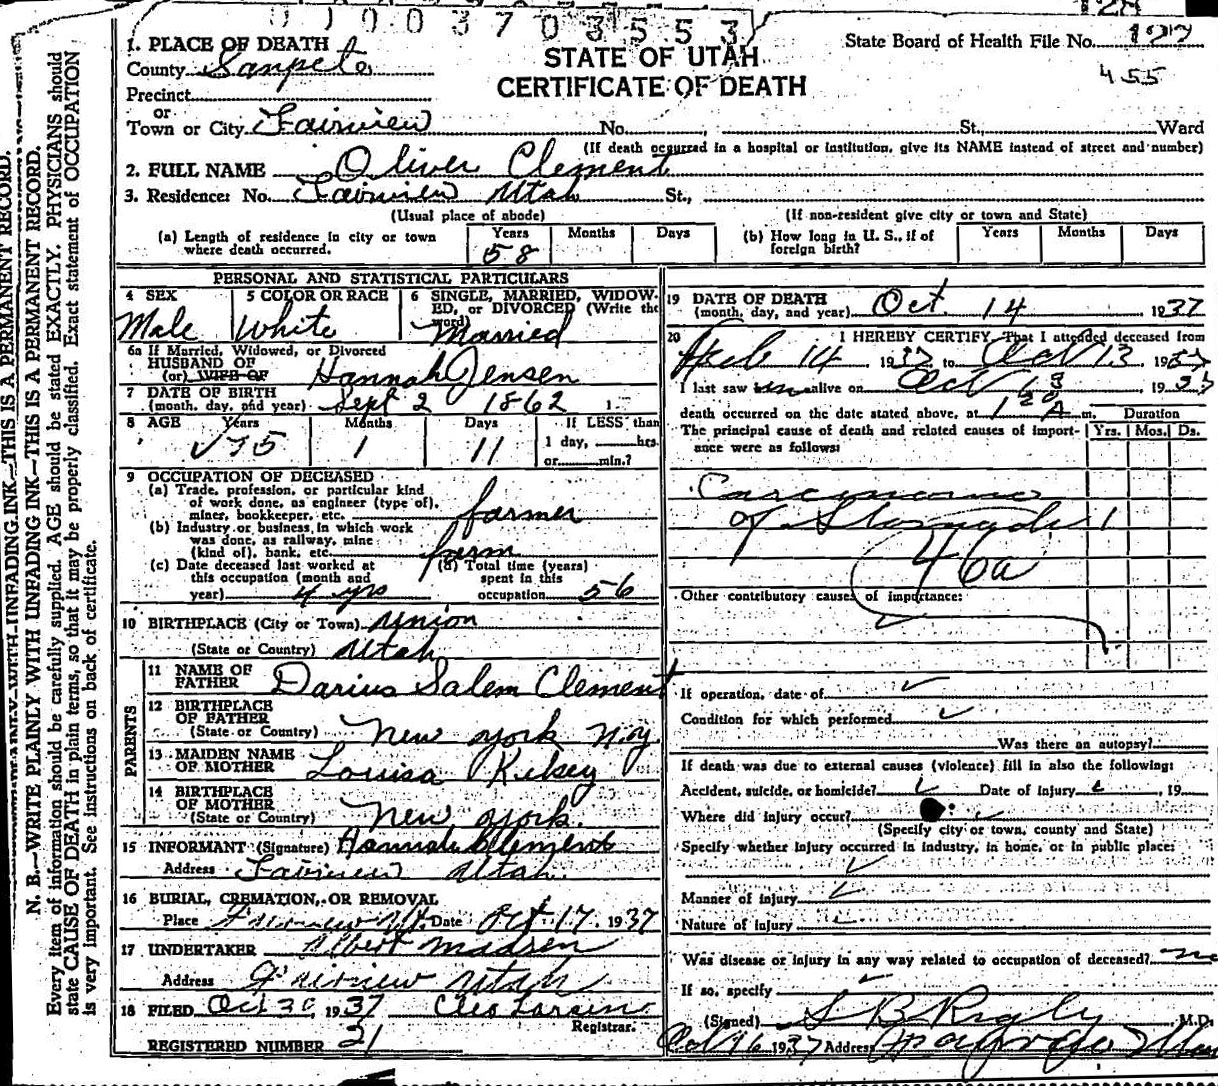 01003703553
1. PLACE OF DEATH
County Sanpete
Precinct
or
Town or City Fairview No. , St., Ward
STATE OF UTAH
CERTIFICATE OF DEATH
State Board of Health File No. 177
455
(If death occurred in a hospital or institution, give its NAME instead of street and number)
2. FULL NAME Oliver Clement
3. Residence: No. Fairview Utah St.,
(Usual place of abode)
(If non-resident give city or town and State)
(a) Length of residence in city or town where death occurred. Years 58 Months Days
(b) How long in U. S., if of foreign birth? Years Months Days
PERSONAL AND STATISTICAL PARTICULARS
4 SEX Male
5 COLOR OR RACE White
6 SINGLE, MARRIED, WIDOWED, OR DIVORCED (Write the word) Married
6a If Married, Widowed, or Divorced
HUSBAND OF
(or) WIFE OF Hannah Jensen
7 DATE OF BIRTH
(month, day, and year) Sept 2 1862 1
8 AGE Years 75 Months 1 Days 11 If LESS than
1 day, hrs.
or min.?
9 OCCUPATION OF DECEASED
(a) Trade, profession, or particular kind
of work done, as engineer (type of),
miner, bookkeeper, etc. farmer
(b) Industry or business, in which work
was done, as railway, mine
(kind of), bank, etc. farm
(c) Date deceased last worked at
this occupation (month and
year) 4 yrs
(d) Total time (years)
spent in this
occupation 56
10 BIRTHPLACE (City or Town) Union
(State or Country) Utah
PARENTS
11 NAME OF
FATHER Darius Salem Clement
12 BIRTHPLACE
OF FATHER
(State or Country) New York N.Y.
13 MAIDEN NAME
OF MOTHER Louisa Kelsey
14 BIRTHPLACE
OF MOTHER
(State or Country) New York.
15 INFORMANT (Signature) Hannah Clement
Address Fairview Utah.
16 BURIAL, CREMATION, OR REMOVAL
Place Fairview Ut. Date Oct 17. 1937
17 UNDERTAKER Albert Madsen
Address Fairview Utah
18 FILED Oct 30 1937 Cleo Larsen
Registrar.
REGISTERED NUMBER 21
19 DATE OF DEATH
(month, day, and year) Oct. 14 1937
20 I HEREBY CERTIFY, That I attended deceased from
Feb 14 1937 to Oct 13 1937
I last saw him alive on Oct 13 1937
death occurred on the date stated above, at 1 20 A m. Duration
The principal cause of death and related causes of importance were as follows: Yrs. Mos. Ds.
Carcinoma
of Stomach 1
46a
Other contributory causes of importance:
If operation, date of
Condition for which performed
Was there an autopsy?
If death was due to external causes (violence) fill in also the following:
Accident, suicide, or homicide? Date of injury , 19
Where did injury occur?
(Specify city or town, county and State)
Specify whether injury occurred in industry, in home, or in public place:
Manner of injury
Nature of injury
Was disease or injury in any way related to occupation of deceased? no
If so, specify
(Signed) S B Rigby M.D.
Oct 16 1937 Address
N. B.—WRITE PLAINLY WITH UNFADING INK—THIS IS A PERMANENT RECORD.
Every item of information should be carefully supplied. AGE should be stated EXACTLY. PHYSICIANS should
state CAUSE OF DEATH in plain terms, so that it may be properly classified. Exact statement of OCCUPATION
is very important. See instructions on back of certificate.